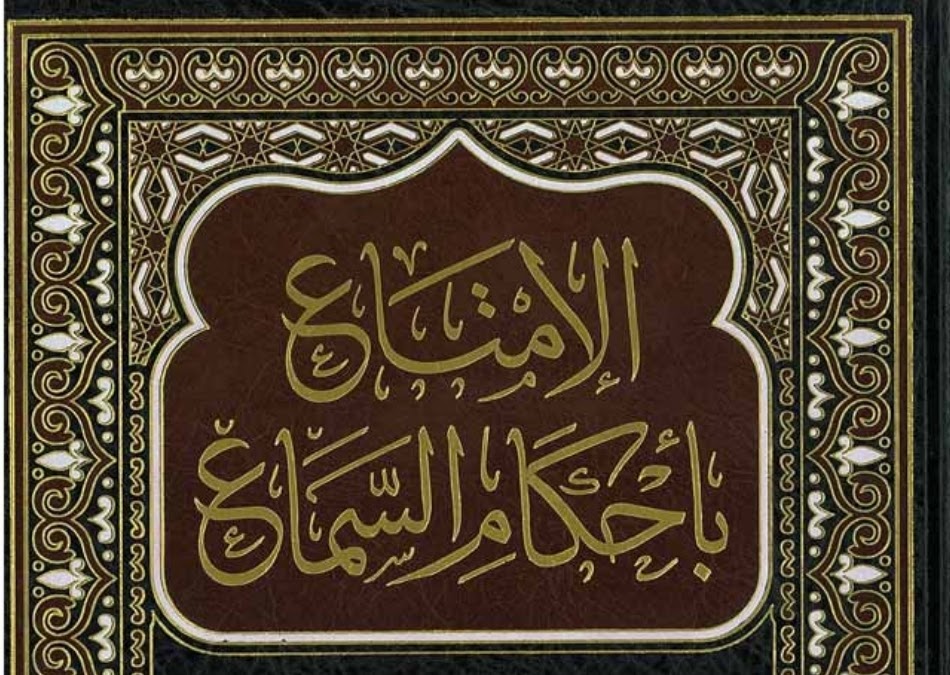 الإمتاع
بأحكام السماع